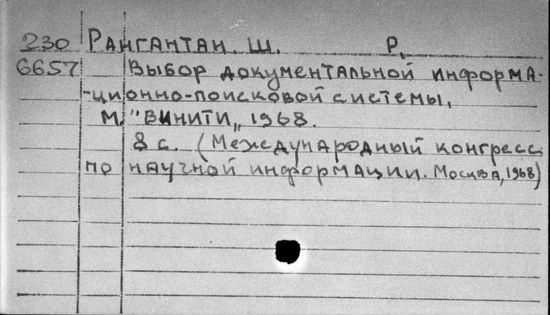 230 Рангантан. Ш. Р.
6657 Выбор документальной информа-
-ционно-поисковой системы.
М. "ВИНИТИ„ 1968.
8 с. (Международный конгресс
по научной информации. Москва, 1968)